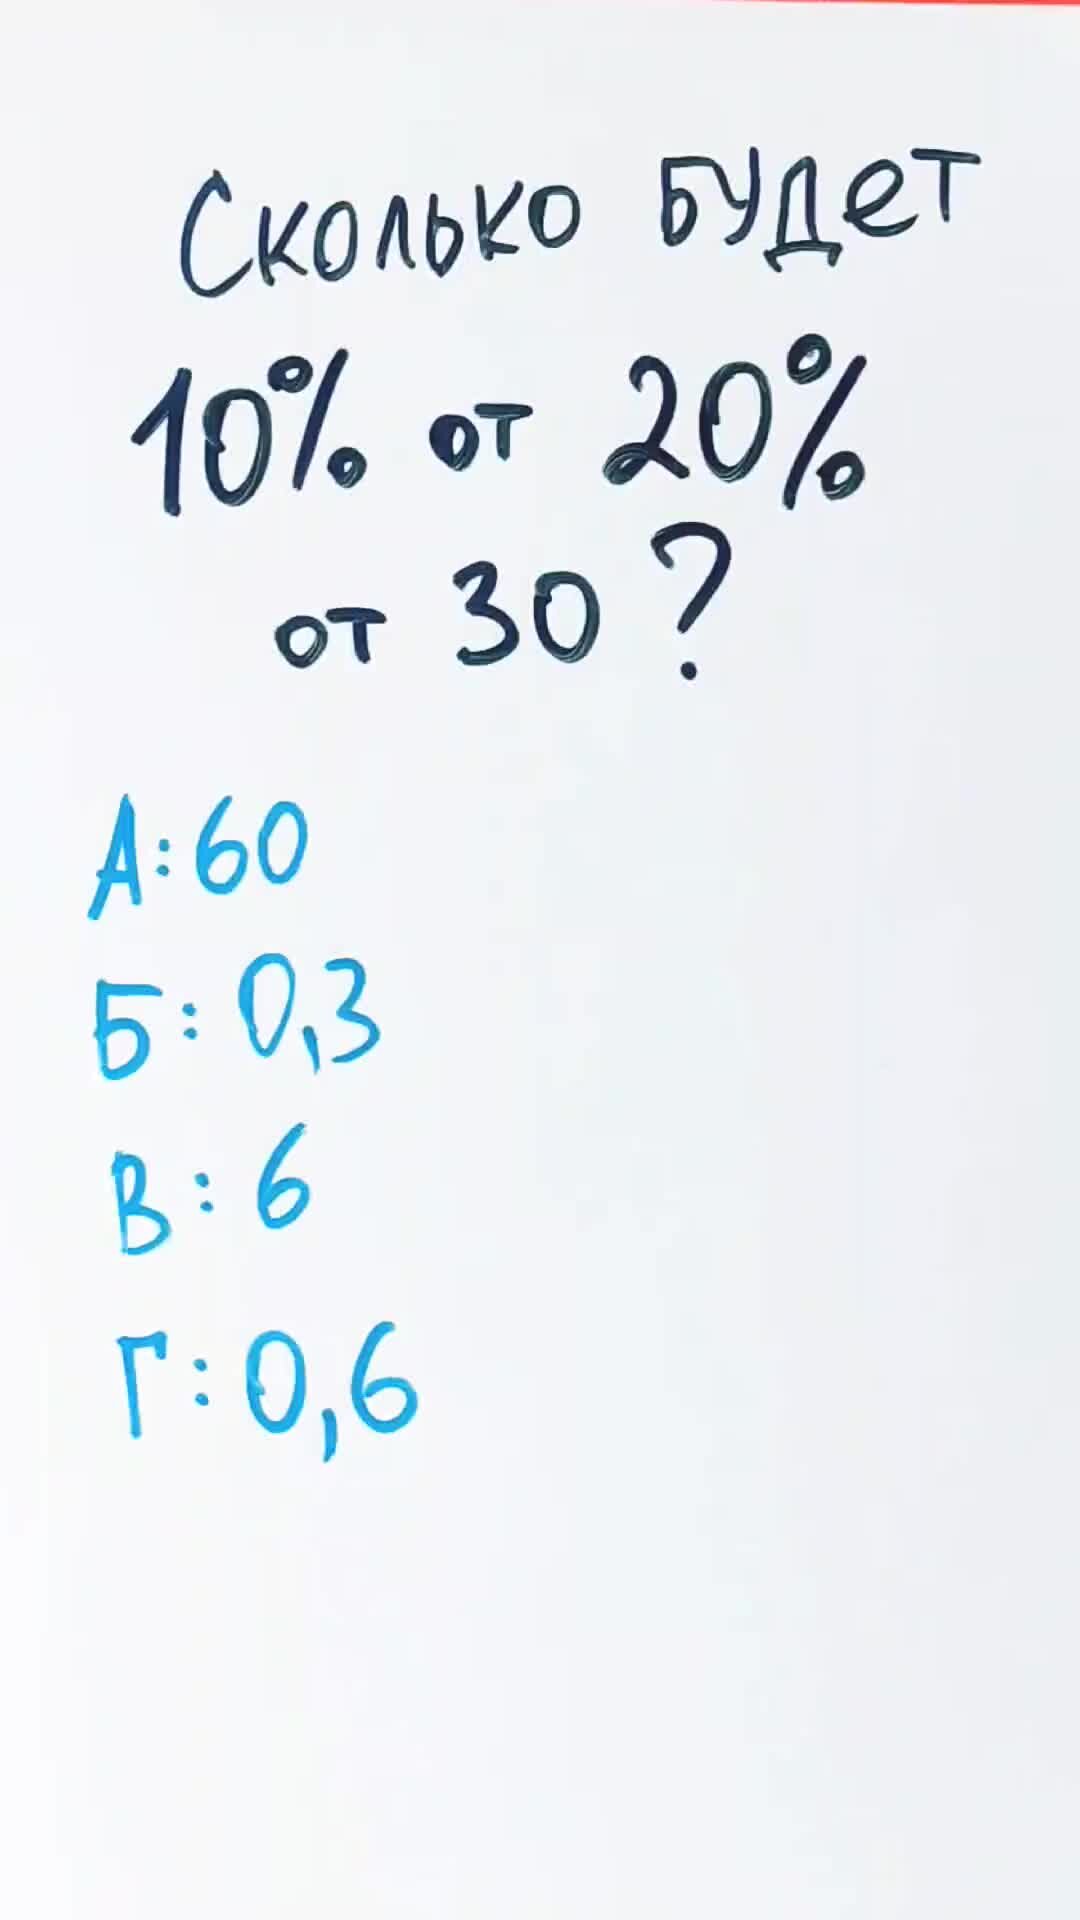 Сколько будет
10% от 20%
от 30?
А: 60
Б: 0,3
В: 6
Г: 0,6